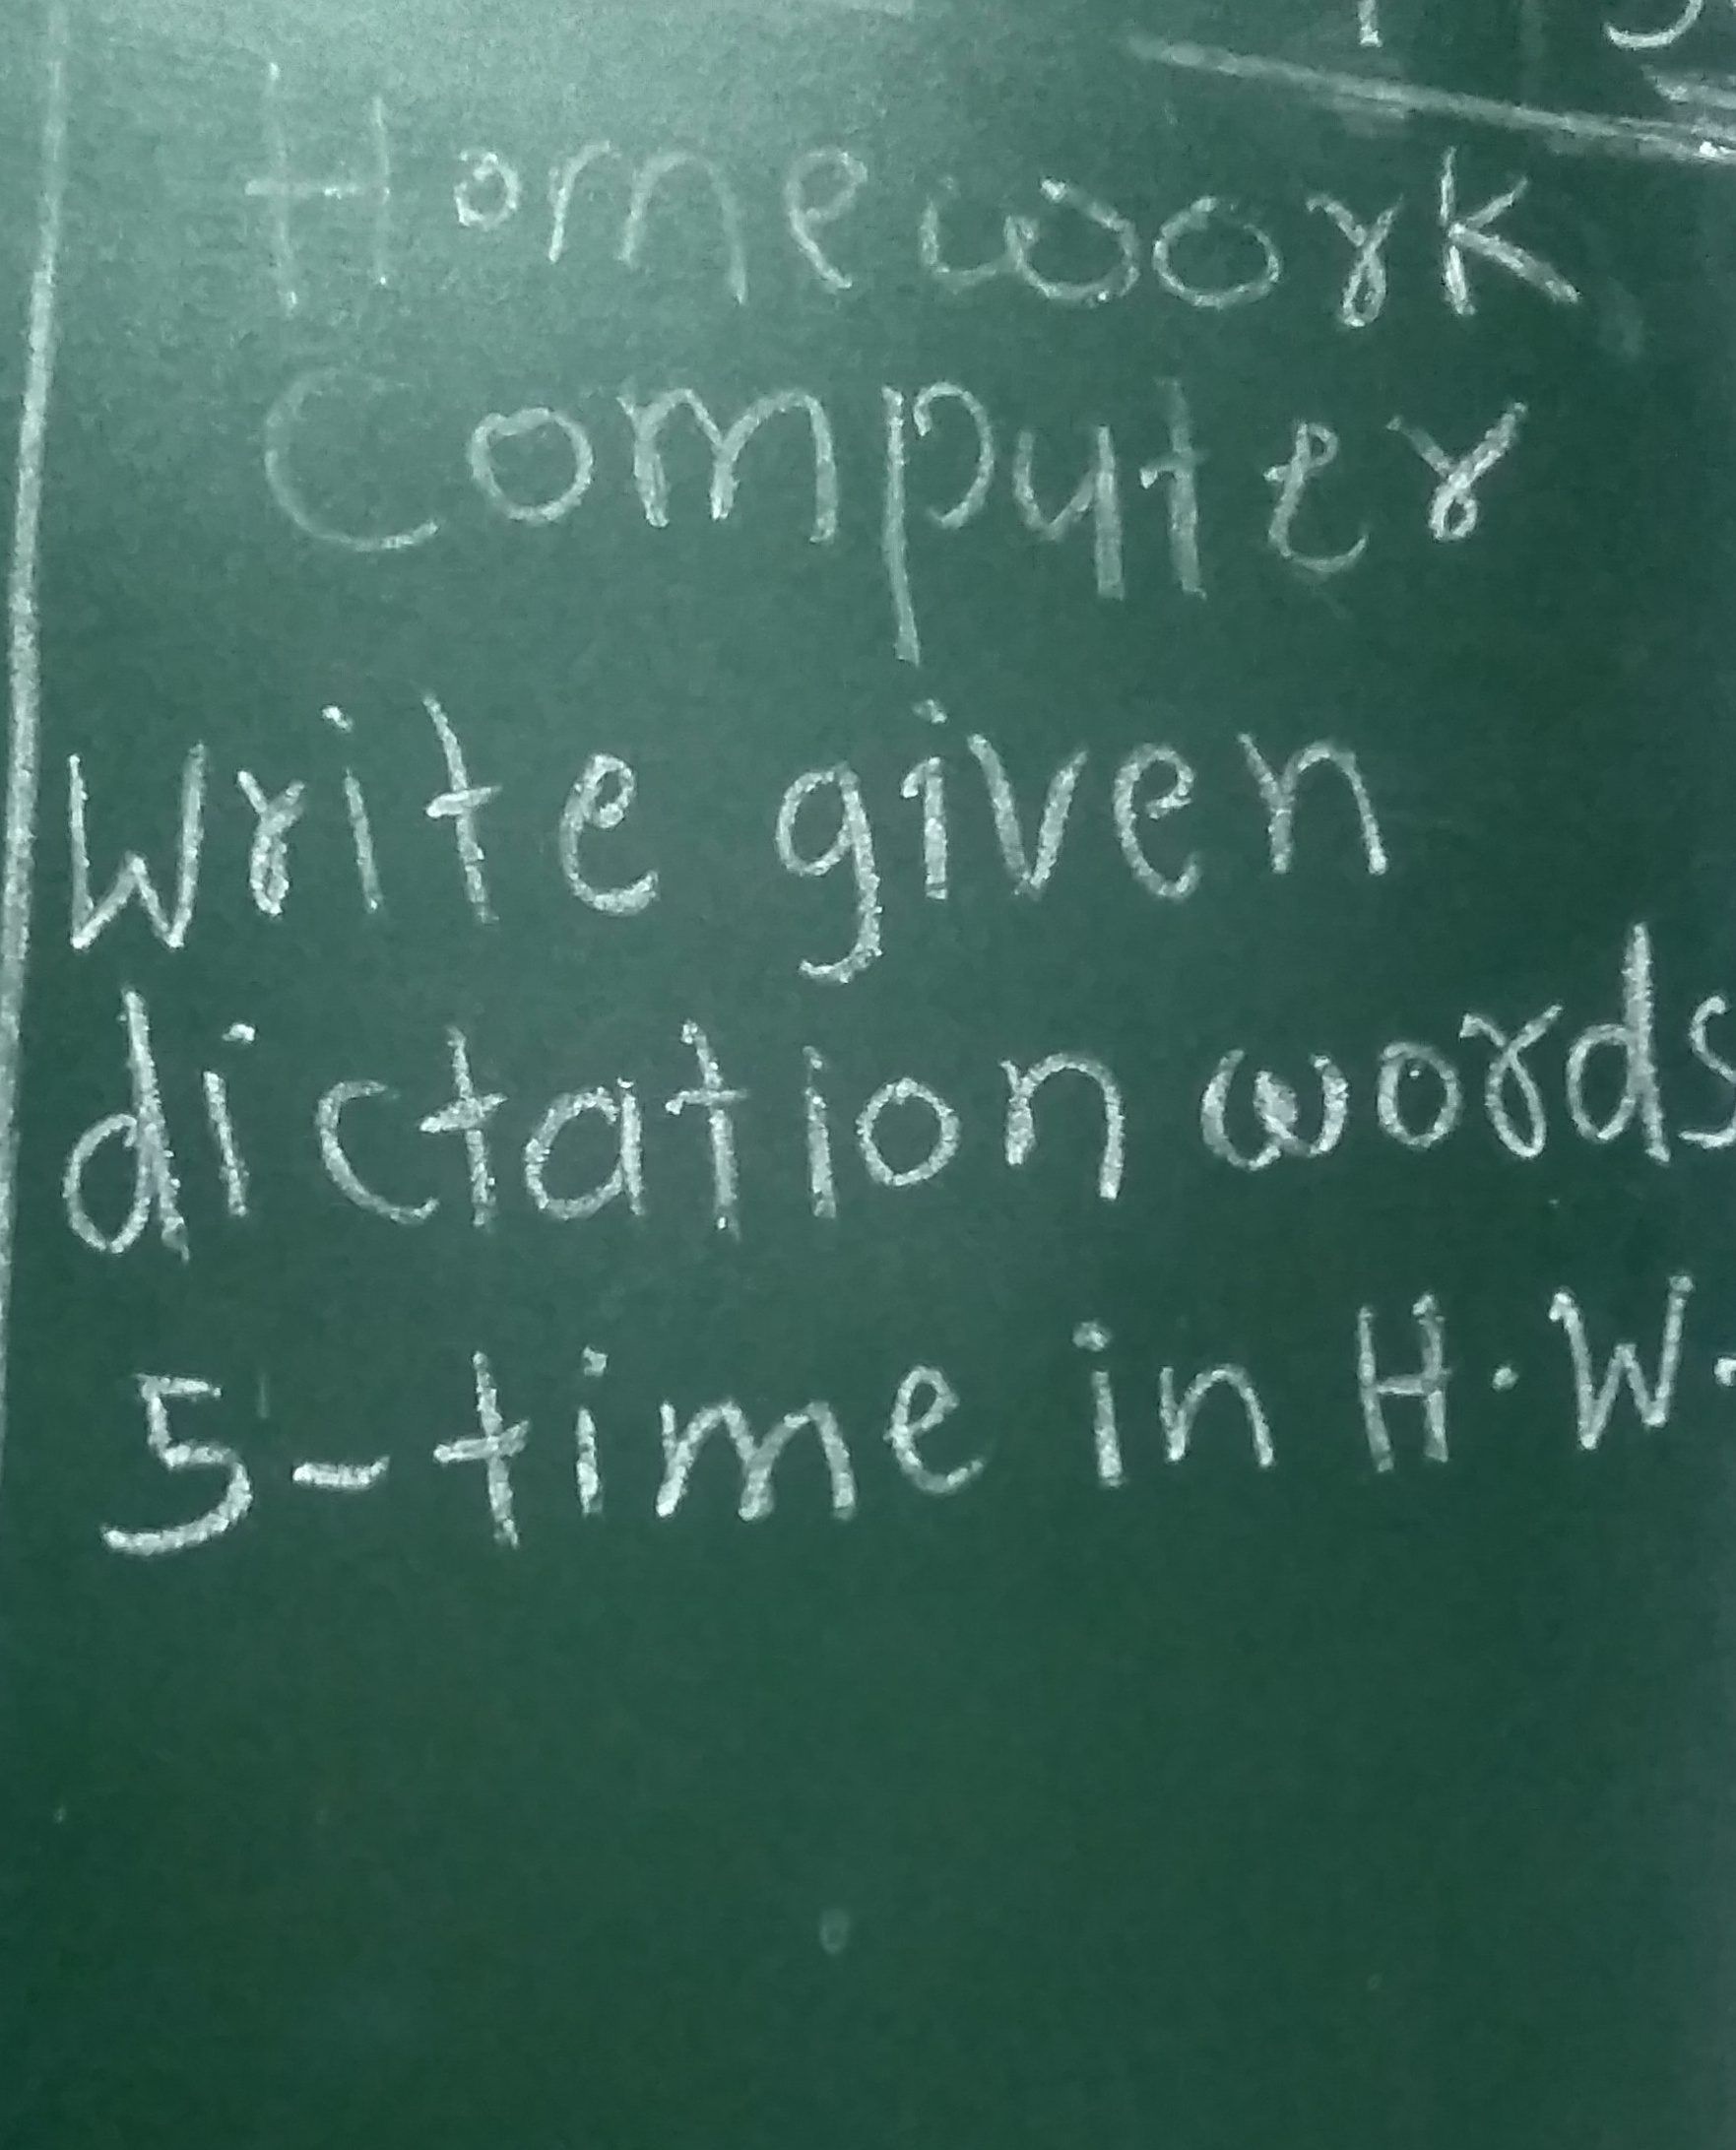 Homework
Computer
Write given
dictation words
5-time in H.W.